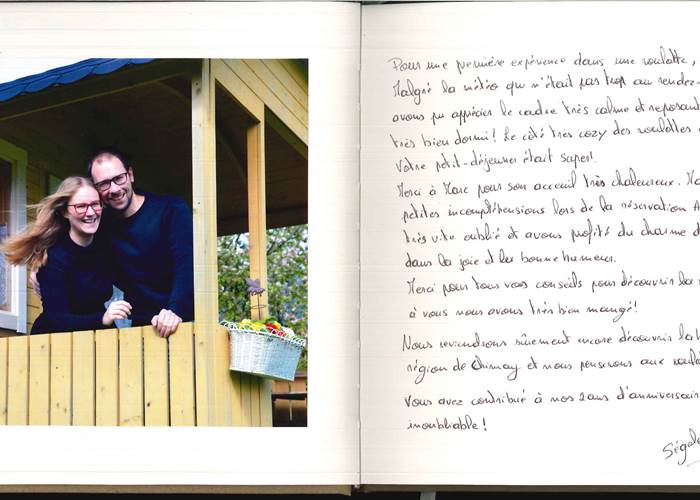 Pour une première expérience dans une roulotte,
Malgré la météo qui n'était pas trop au rendez-
avons pu apprécier le cadre très calme et reposant
très bien dormi! Le côté très cozy des roulottes
Votre petit-déjeuner était super!
Merci à Marc pour son acceuil très chaleureux.
petites incompréhensions lors de la réservation
très vite oublié et avons profité du charme
dans la joie et la bonne humeur.
Merci pour tous vos conseils pour découvrir la
à vous nous avons très bien mangé!
Nous reviendrons sûrement encore découvrir la
région de Chimay et nous penserons aux
Vous avez contribué à nos 2 ans d'anniversaire
inoubliable!